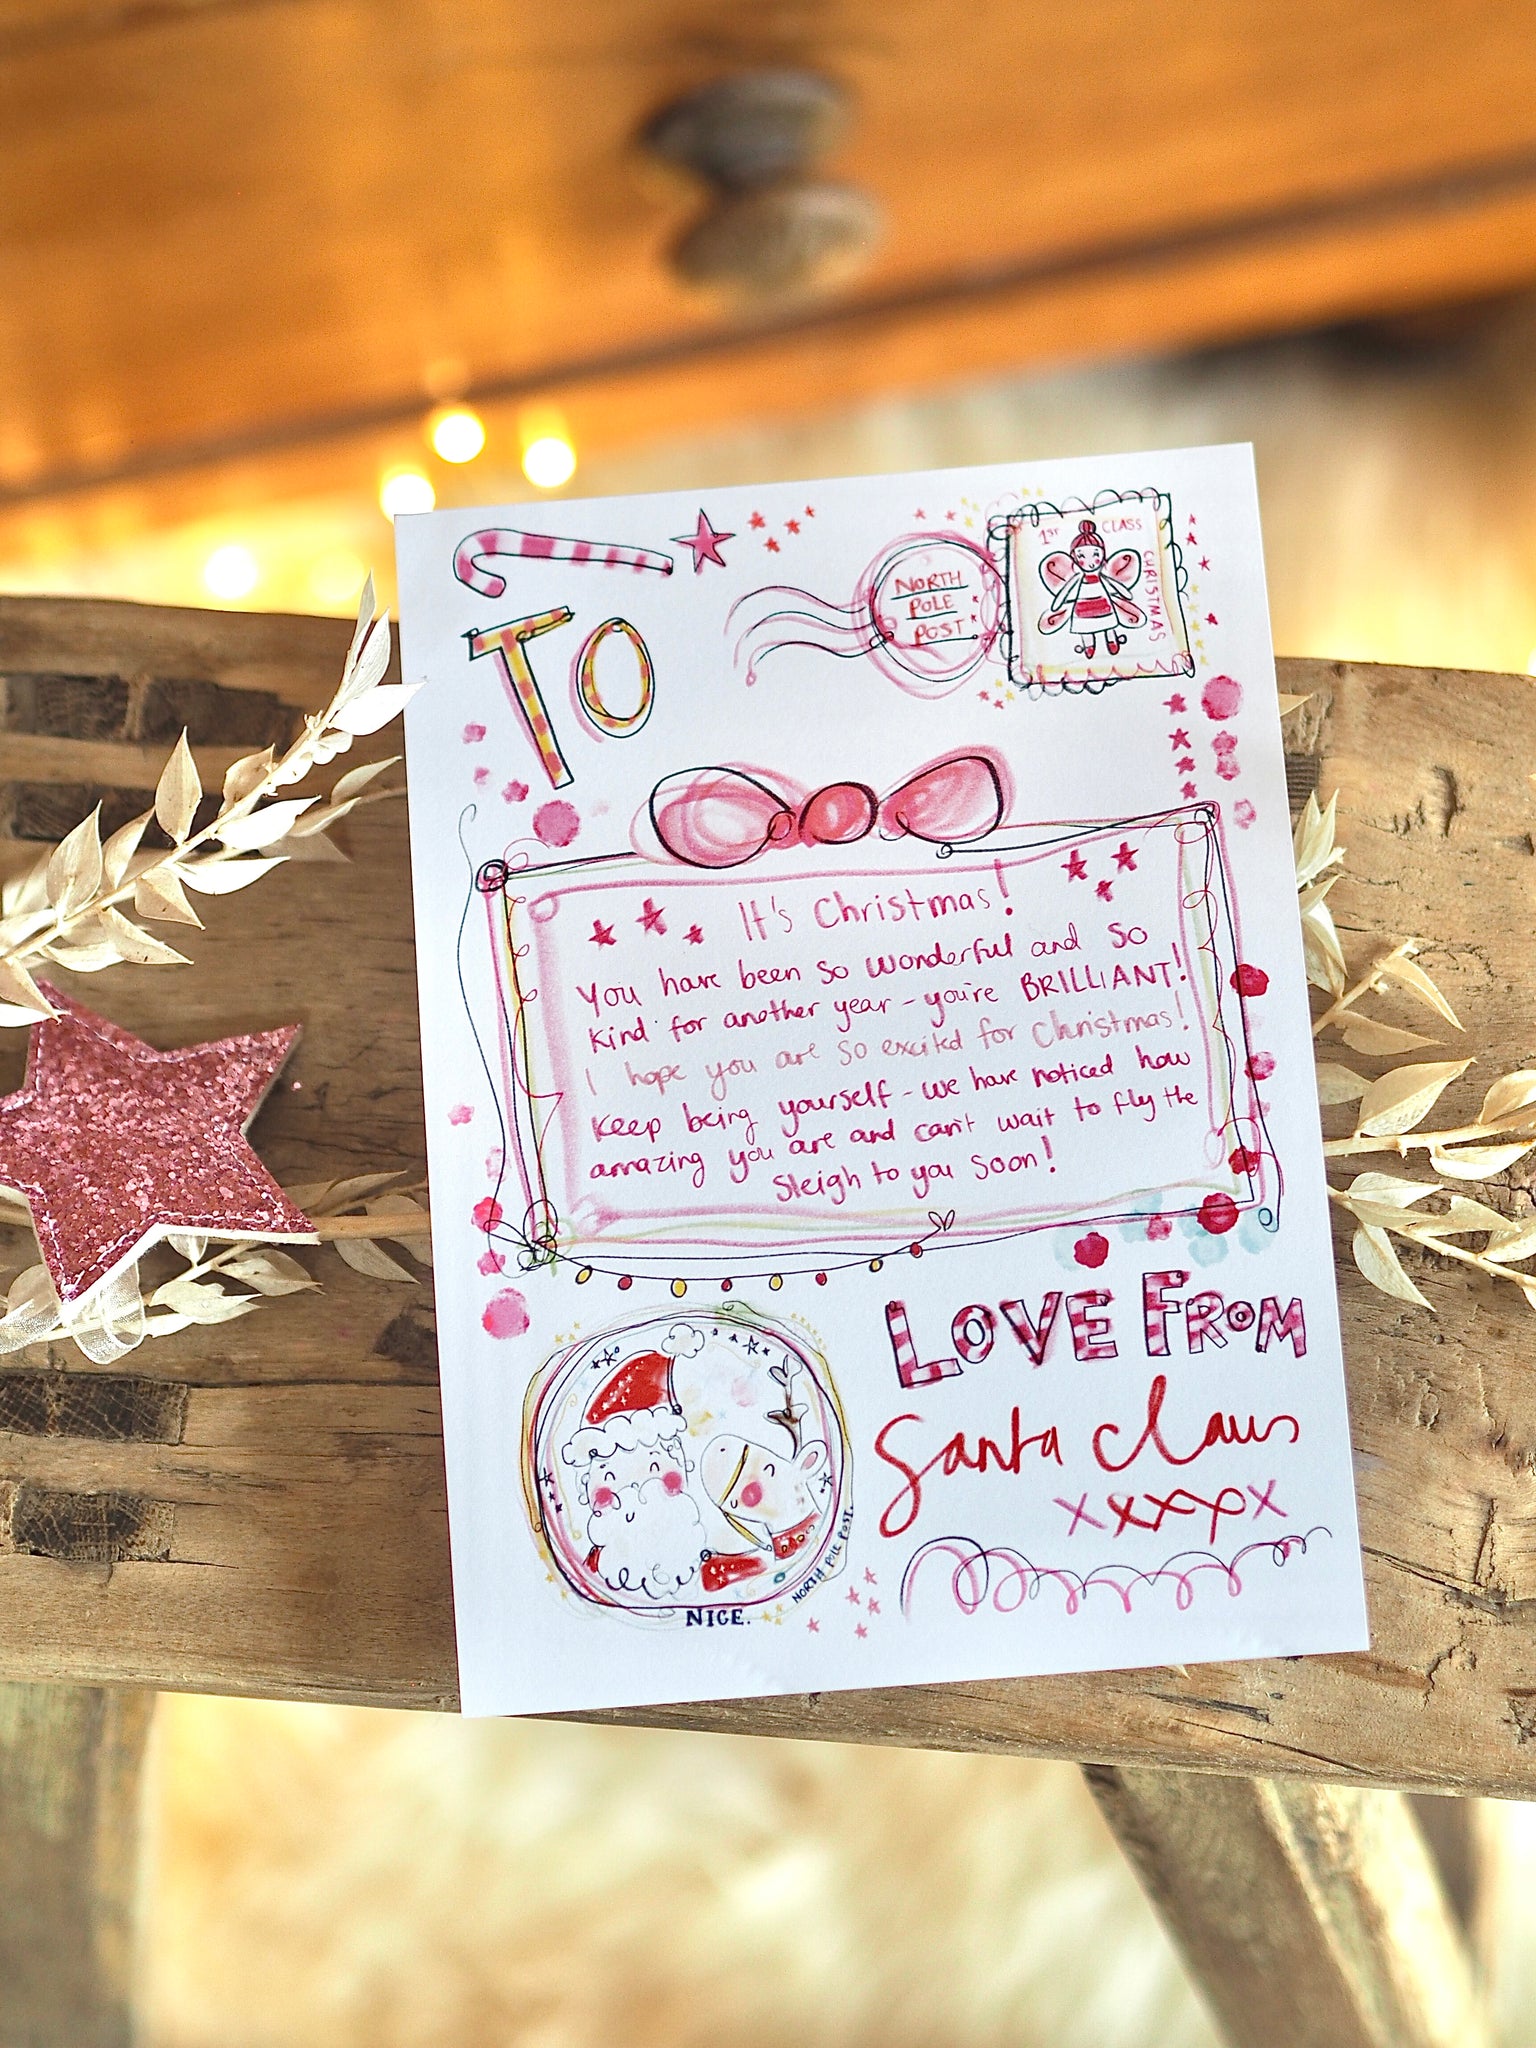 TO
NORTH
POLE
POST
1ST CLASS
CHRISTMAS
It's Christmas!
You have been so wonderful and so
kind for another year - you're BRILLIANT!
I hope you are so excited for Christmas!
Keep being yourself - we have noticed how
amazing you are and can't wait to fly the
sleigh to you soon!
LOVE FROM
Santa Claus
xxxxx
NORTH POLE POST.
NICE.